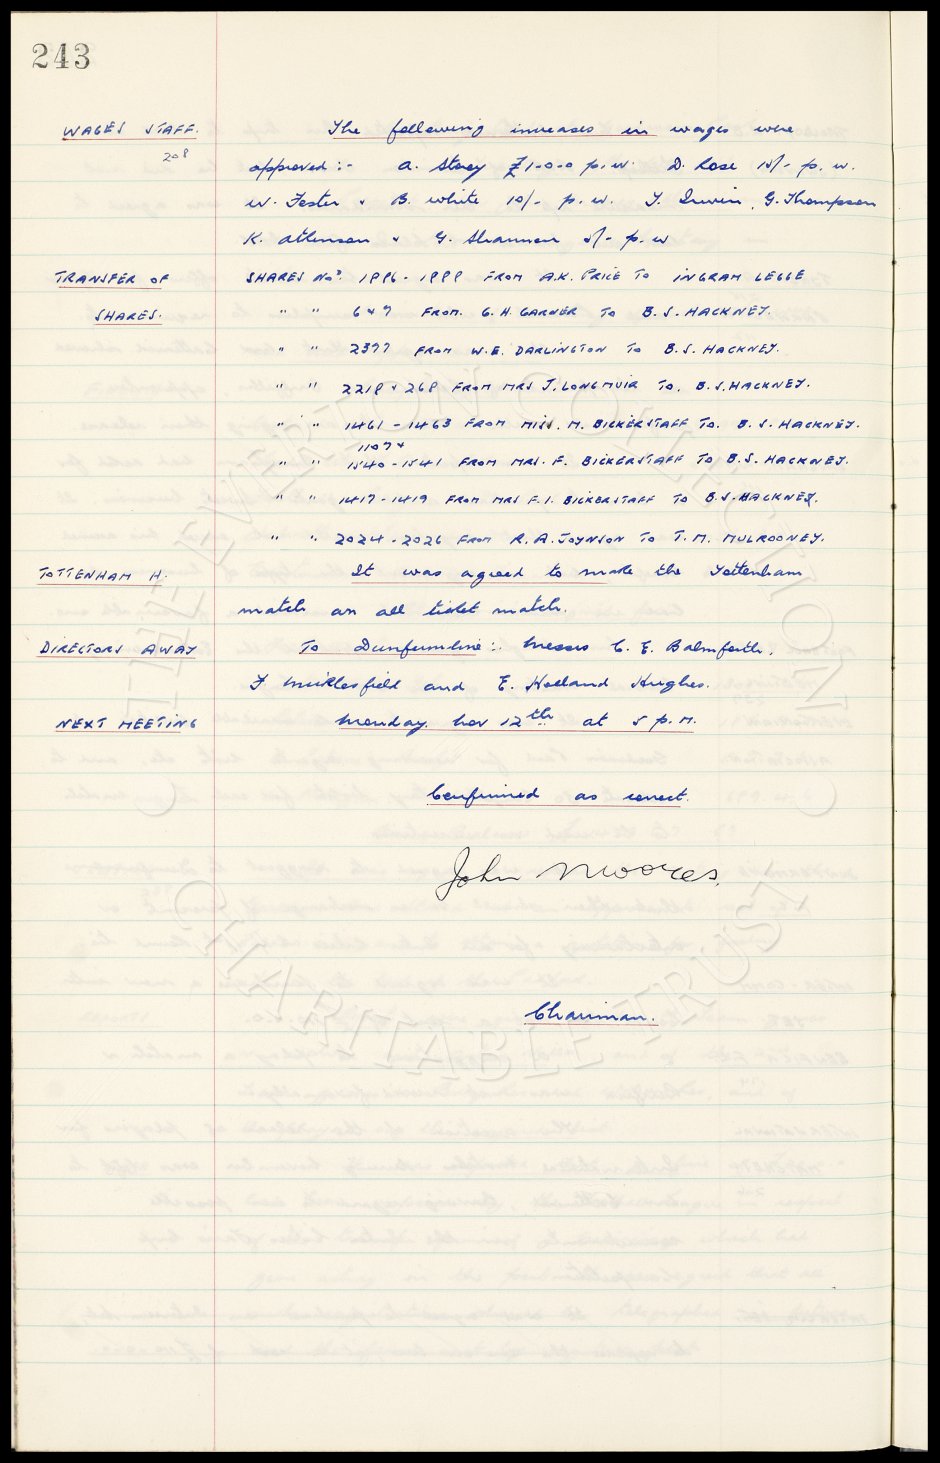 243
WAGES STAFF.
208
The following increases in wages were
approved :- A. Storey £1-0-0 p.w. D. Rose 15/- p.w.
W. Foster & B. White 10/- p.w. T. Irwin, G. Thompson
K. Atkinson & G. Shannon 5/- p.w
TRANSFER OF SHARES Nos. 1886-1888 FROM A.K. PRICE TO INGRAM LEGGE
SHARES. " " 6 & 7 FROM. G.H. GARNER TO B.S. HACKNEY.
" " 2377 FROM W.E. DARLINGTON TO B.S. HACKNEY.
" " 2218 & 268 FROM MRS J. LONGMUIR TO. B.S. HACKNEY.
" " 1461 - 1463 FROM MISS. M. BICKERSTAFF TO. B.S. HACKNEY.
1107 &
" " 1540-1541 FROM MRS. F. BICKERSTAFF TO B.S. HACKNEY.
" " 1417-1419 FROM MRS F.I. BICKERSTAFF TO B.S. HACKNEY.
" " 2024-2026 FROM R.A. JOYNSON TO T.M. MULROONEY.
TOTTENHAM H. It was agreed to make the Tottenham
match an all ticket match.
DIRECTORS AWAY To Dunfermline :- Messrs C.E. Balmforth,
F Micklesfield and E. Holland Hughes.
NEXT MEETING Monday Nov 12th at 5 p.m.
Confirmed as correct.
John Moores.
Chairman.
THE EVERTON COLLECTION
CHARITABLE TRUST